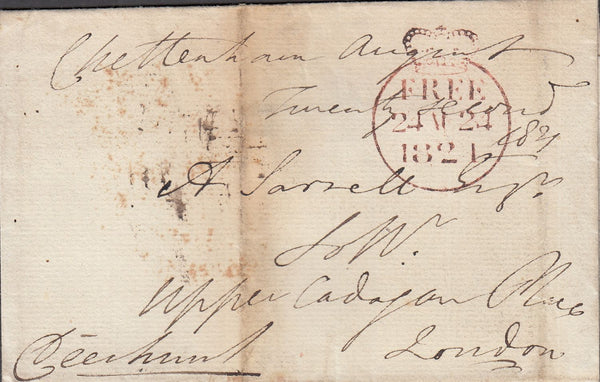 Cheltenham August
Twenty second
1821
FREE
24 AU 24
1821
A Sarrell Esqr.
Upper Cadogan Place
London
Deerhurst